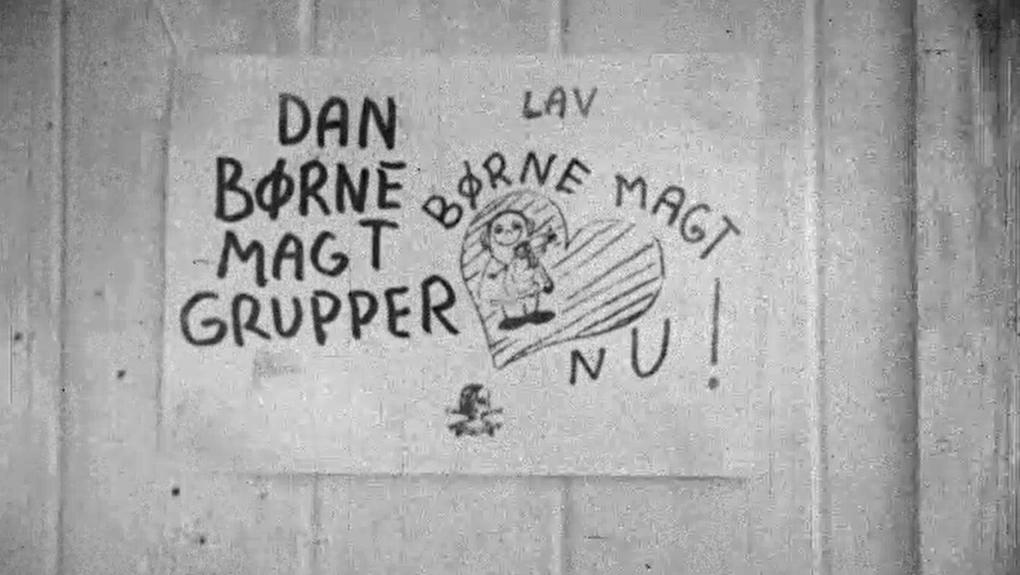 DAN
BØRNE
MAGT
GRUPPER
LAV
BØRNE MAGT
NU!